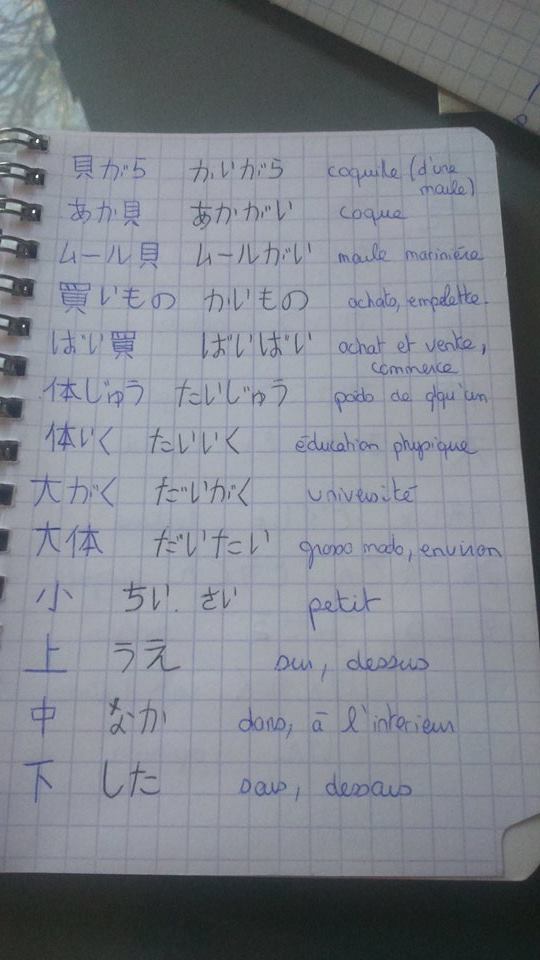 貝がら かいがら coquille (d'une
moule)
あか貝 あかがい coque
ムール貝 ムールがい moule marinière
買いもの かいもの achats, empelette.
ばい買 ばいばい achat et vente,
commerce
体じゅう たいじゅう poids de qlqu'un
体いく たいいく éducation physique
大がく だいがく université
大体 だいたい grosso modo, environ
小 ちい.さい petit
上 うえ sur, dessus
中 なか dans, à l'interieur
下 した sous, dessous